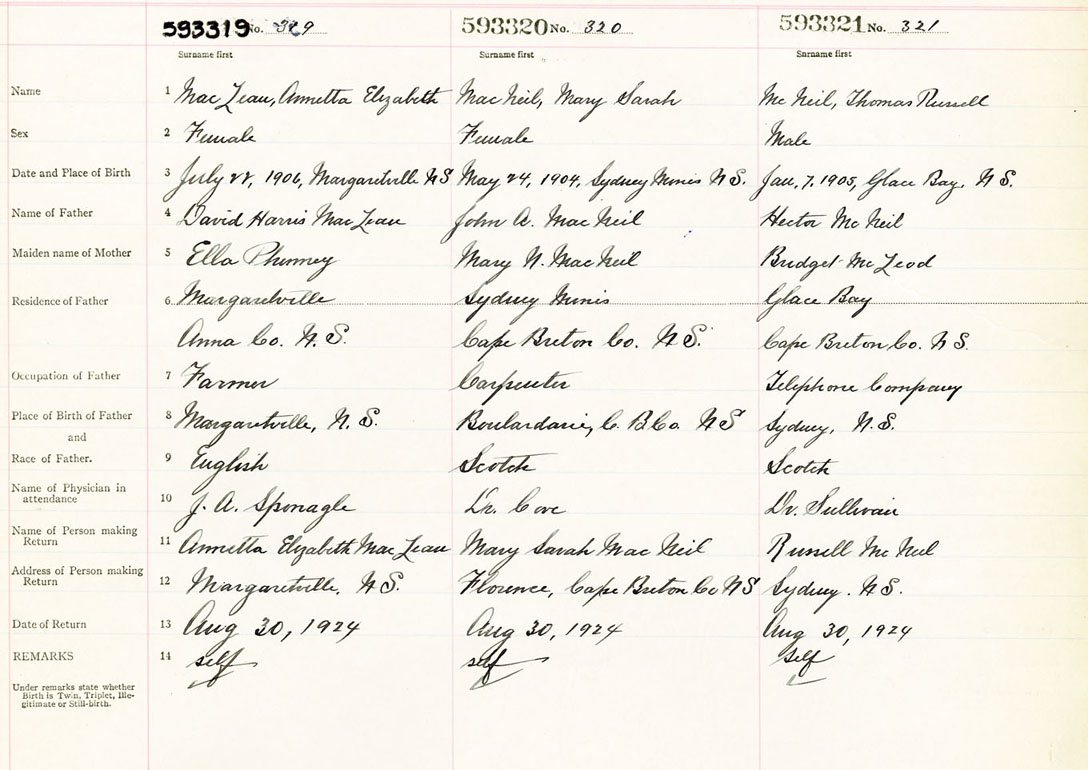 593319 No. 319 593320 No. 320 593321 No. 321
Surname first Surname first Surname first
Name 1 Mac Lean, Annetta Elizabeth Mac Neil, Mary Sarah Mc Neil, Thomas Russell
Sex 2 Female Female Male
Date and Place of Birth 3 July 22, 1906, Margaretville N S May 24, 1904, Sydney Mines N S. Jan. 7. 1905, Glace Bay. N S.
Name of Father 4 David Harris Mac Lean John A. Mac Neil Hector Mc Neil
Maiden name of Mother 5 Ella Phinney Mary N. Mac Neil Bridget Mc Leod
Residence of Father 6. Margaretville Sydney Mines Glace Bay
Anna Co. N. S. Cape Breton Co. N S. Cape Breton Co. N S.
Occupation of Father 7 Farmer Carpenter Telephone Company
Place of Birth of Father 8 Margaretville, N. S. Boulardarie, C. B Co. N S Sydney, N. S.
and
Race of Father. 9 English Scotch Scotch
Name of Physician in
attendance 10 J. A. Sponagle Dr. Dr. Sullivan
Name of Person making
Return 11 Annetta Elizabeth Mac Lean Mary Sarah Mac Neil Russell Mc Neil
Address of Person making
Return 12 Margaretville, N S. Florence, Cape Breton Co N S Sydney. N S.
Date of Return 13 Aug 30, 1924 Aug 30, 1924 Aug 30, 1924
REMARKS 14 self self self
Under remarks state whether
Birth is Twin, Triplet, Ille-
gitimate or Still-birth.